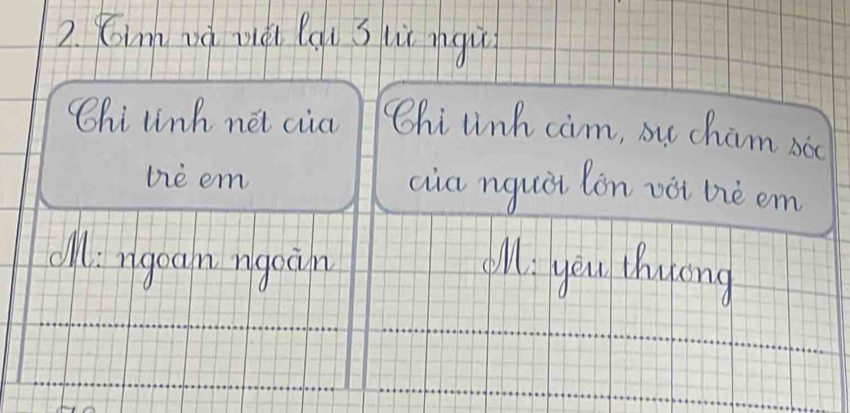 2. Tìm và viết lại 3 từ ngữ:
Chỉ tính nết của
trẻ em
Chỉ tình cảm, sự chăm sóc
của người lớn với trẻ em
M: ngoan ngoãn
M: yêu thương